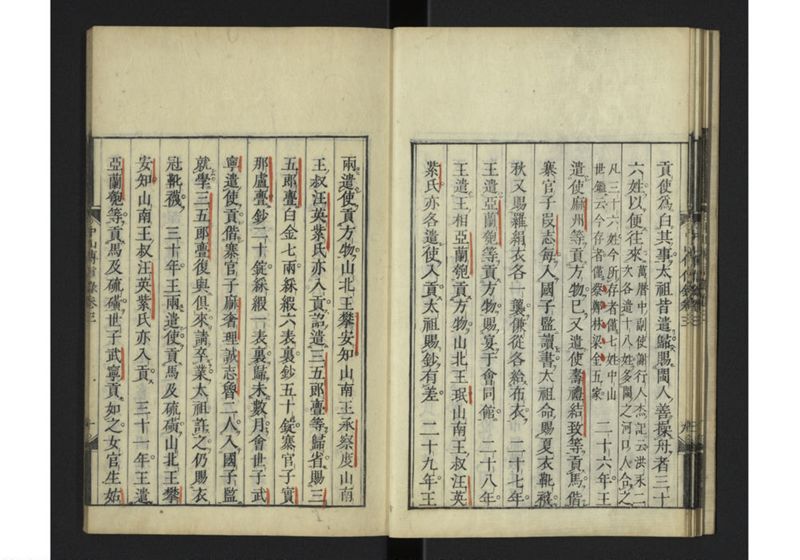 貢使為白其事太祖昔遣歸賜閩人善操舟者三十
六姓以便往來
萬曆中副使謝行人杰記云洪永二
次各遣十八姓多閩之河口人合之
凡三十六姓今所存者僅七姓中山
世鑑云今存者僅蔡鄭林梁金五家
二十六年王
遣使麻州等貢方物已又遣使壽禮結致等貢馬偕
寨官子叚志每入國子監讀書太祖命賜夏衣靴襪
秋又賜羅絹衣各一襲傔從各給布衣 二十七年
王遣亞蘭匏等貢方物賜宴于會同館 二十八年
王遣王相亞蘭匏貢方物山北王珉山南王叔汪英
紫氏亦各遣使入貢太祖賜鈔有差 二十九年王
兩遣使貢方物山北王攀安知山南王承察度山南
王叔汪英紫氏亦入貢詔遣三五郎亹等歸省賜三
五郎亹白金七兩綵緞六表裏鈔五十錠寨官子實
那盧亹鈔二十錠綵緞一表裏歸未數月會世子武
寧遣使貢偕寨官子麻奢理誠志魯二人入國子監
就學三五郎亹復與俱來請卒業太祖許之仍賜衣
冠靴襪 三十年王兩遣使貢馬及硫磺山北王攀
安知山南王叔汪英紫氏亦入貢 三十一年王遣
亞蘭匏等貢馬及硫磺世子武寧貢如之女官生姑
中山傳信錄卷三